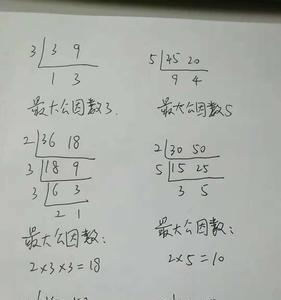 3 3 9
1 3
最大公因数3.
5 45 20
9 4
最大公因数5
2 36 18
3 18 9
3 6 3
2 1
最大公因数:
2×3×3=18
2 30 50
5 15 25
3 5
最大公因数:
2×5=10